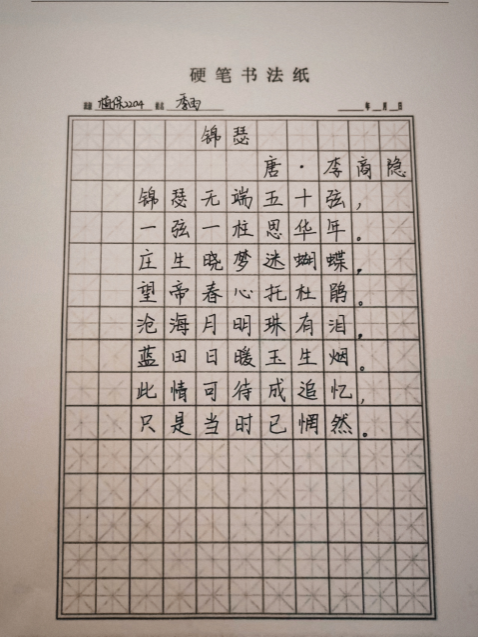 硬笔书法纸
班级 植保2204 姓名 李雨 年 月 日
锦瑟
唐·李商隐
锦瑟无端五十弦,
一弦一柱思华年。
庄生晓梦迷蝴蝶,
望帝春心托杜鹃。
沧海月明珠有泪,
蓝田日暖玉生烟。
此情可待成追忆,
只是当时已惘然。